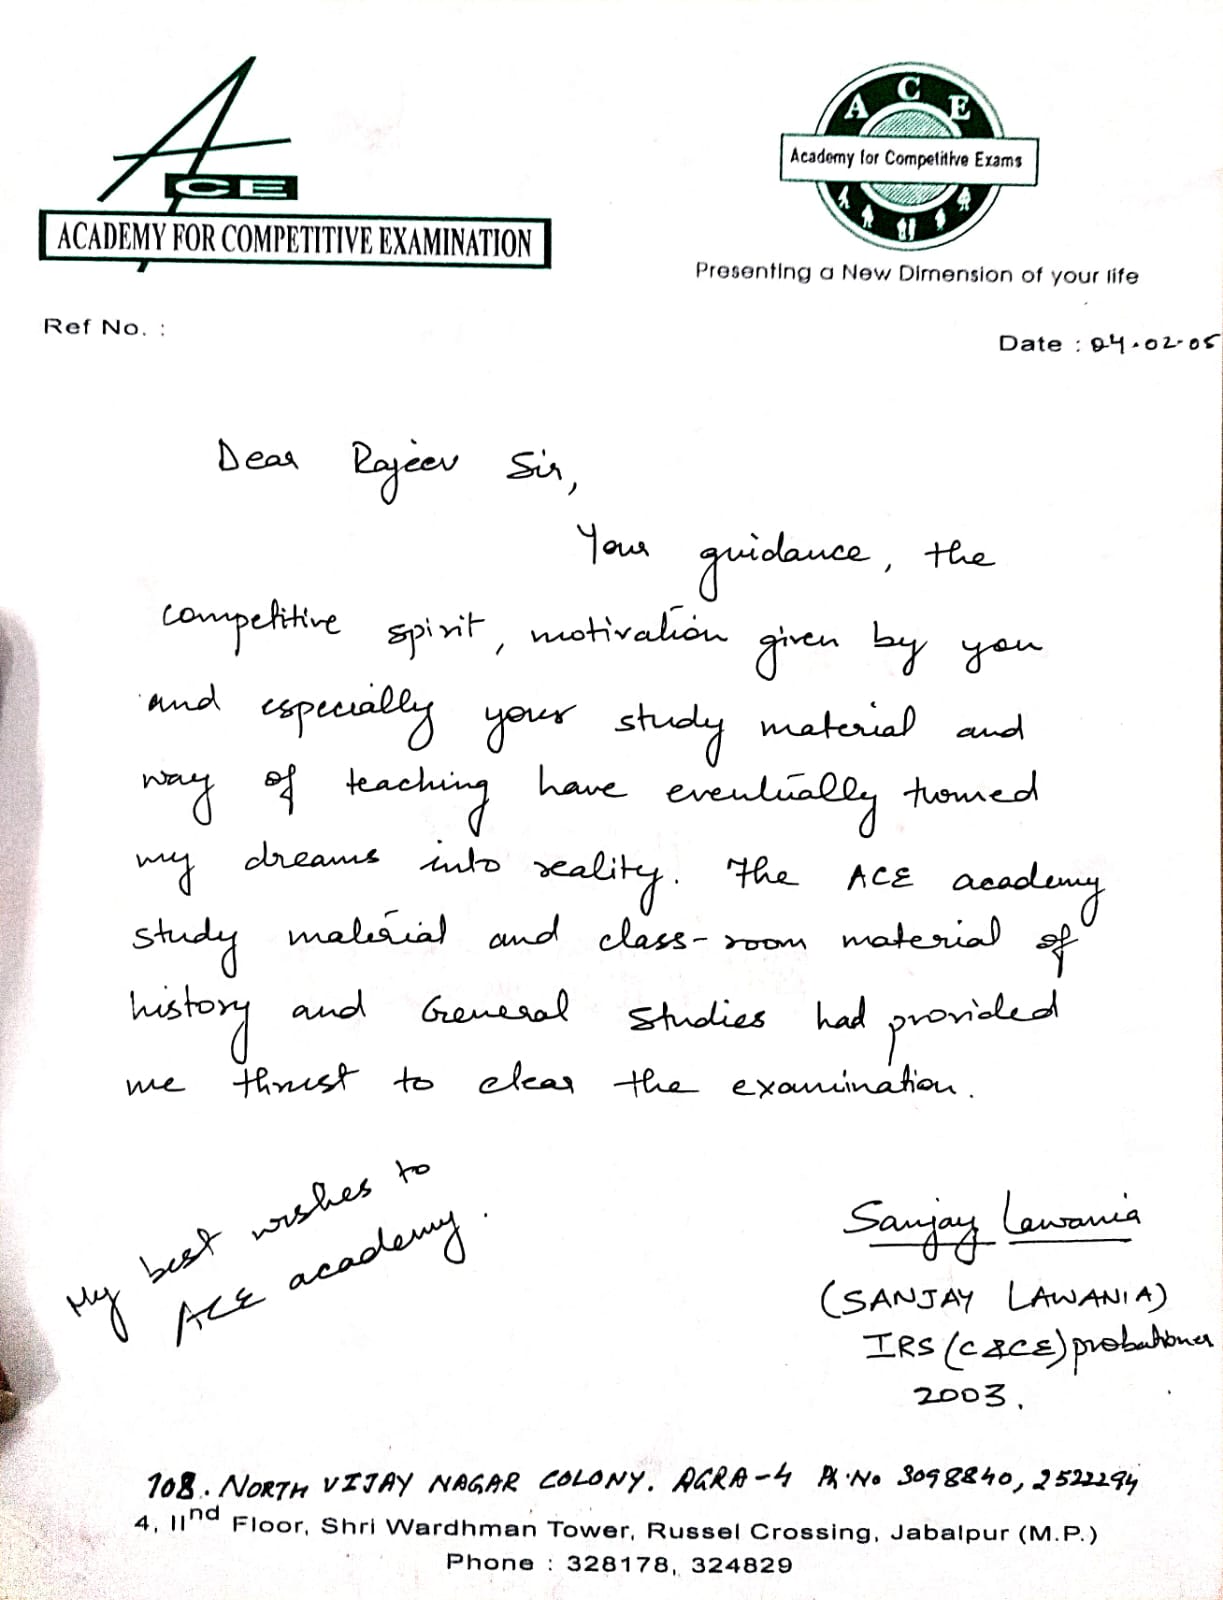 ACE
ACADEMY FOR COMPETITIVE EXAMINATION
A C E
Academy for Competitive Exams
Presenting a New Dimension of your life
Ref No. :
Date : 04.02.05
Dear Rajeev Sir,
Your guidance, the
competitive spirit, motivation given by you
and especially your study material and
way of teaching have eventually turned
my dreams into reality. The ACE academy
study material and class-room material of
history and General Studies had provided
me thrust to clear the examination.
My best wishes to
ACE academy.
Sanjay Lawania
(SANJAY LAWANIA)
IRS (C&CE) probationer
2003.
108. NORTH VIJAY NAGAR COLONY. AGRA-4 Ph.No 3098840, 2522294
4, IInd Floor, Shri Wardhman Tower, Russel Crossing, Jabalpur (M.P.)
Phone : 328178, 324829